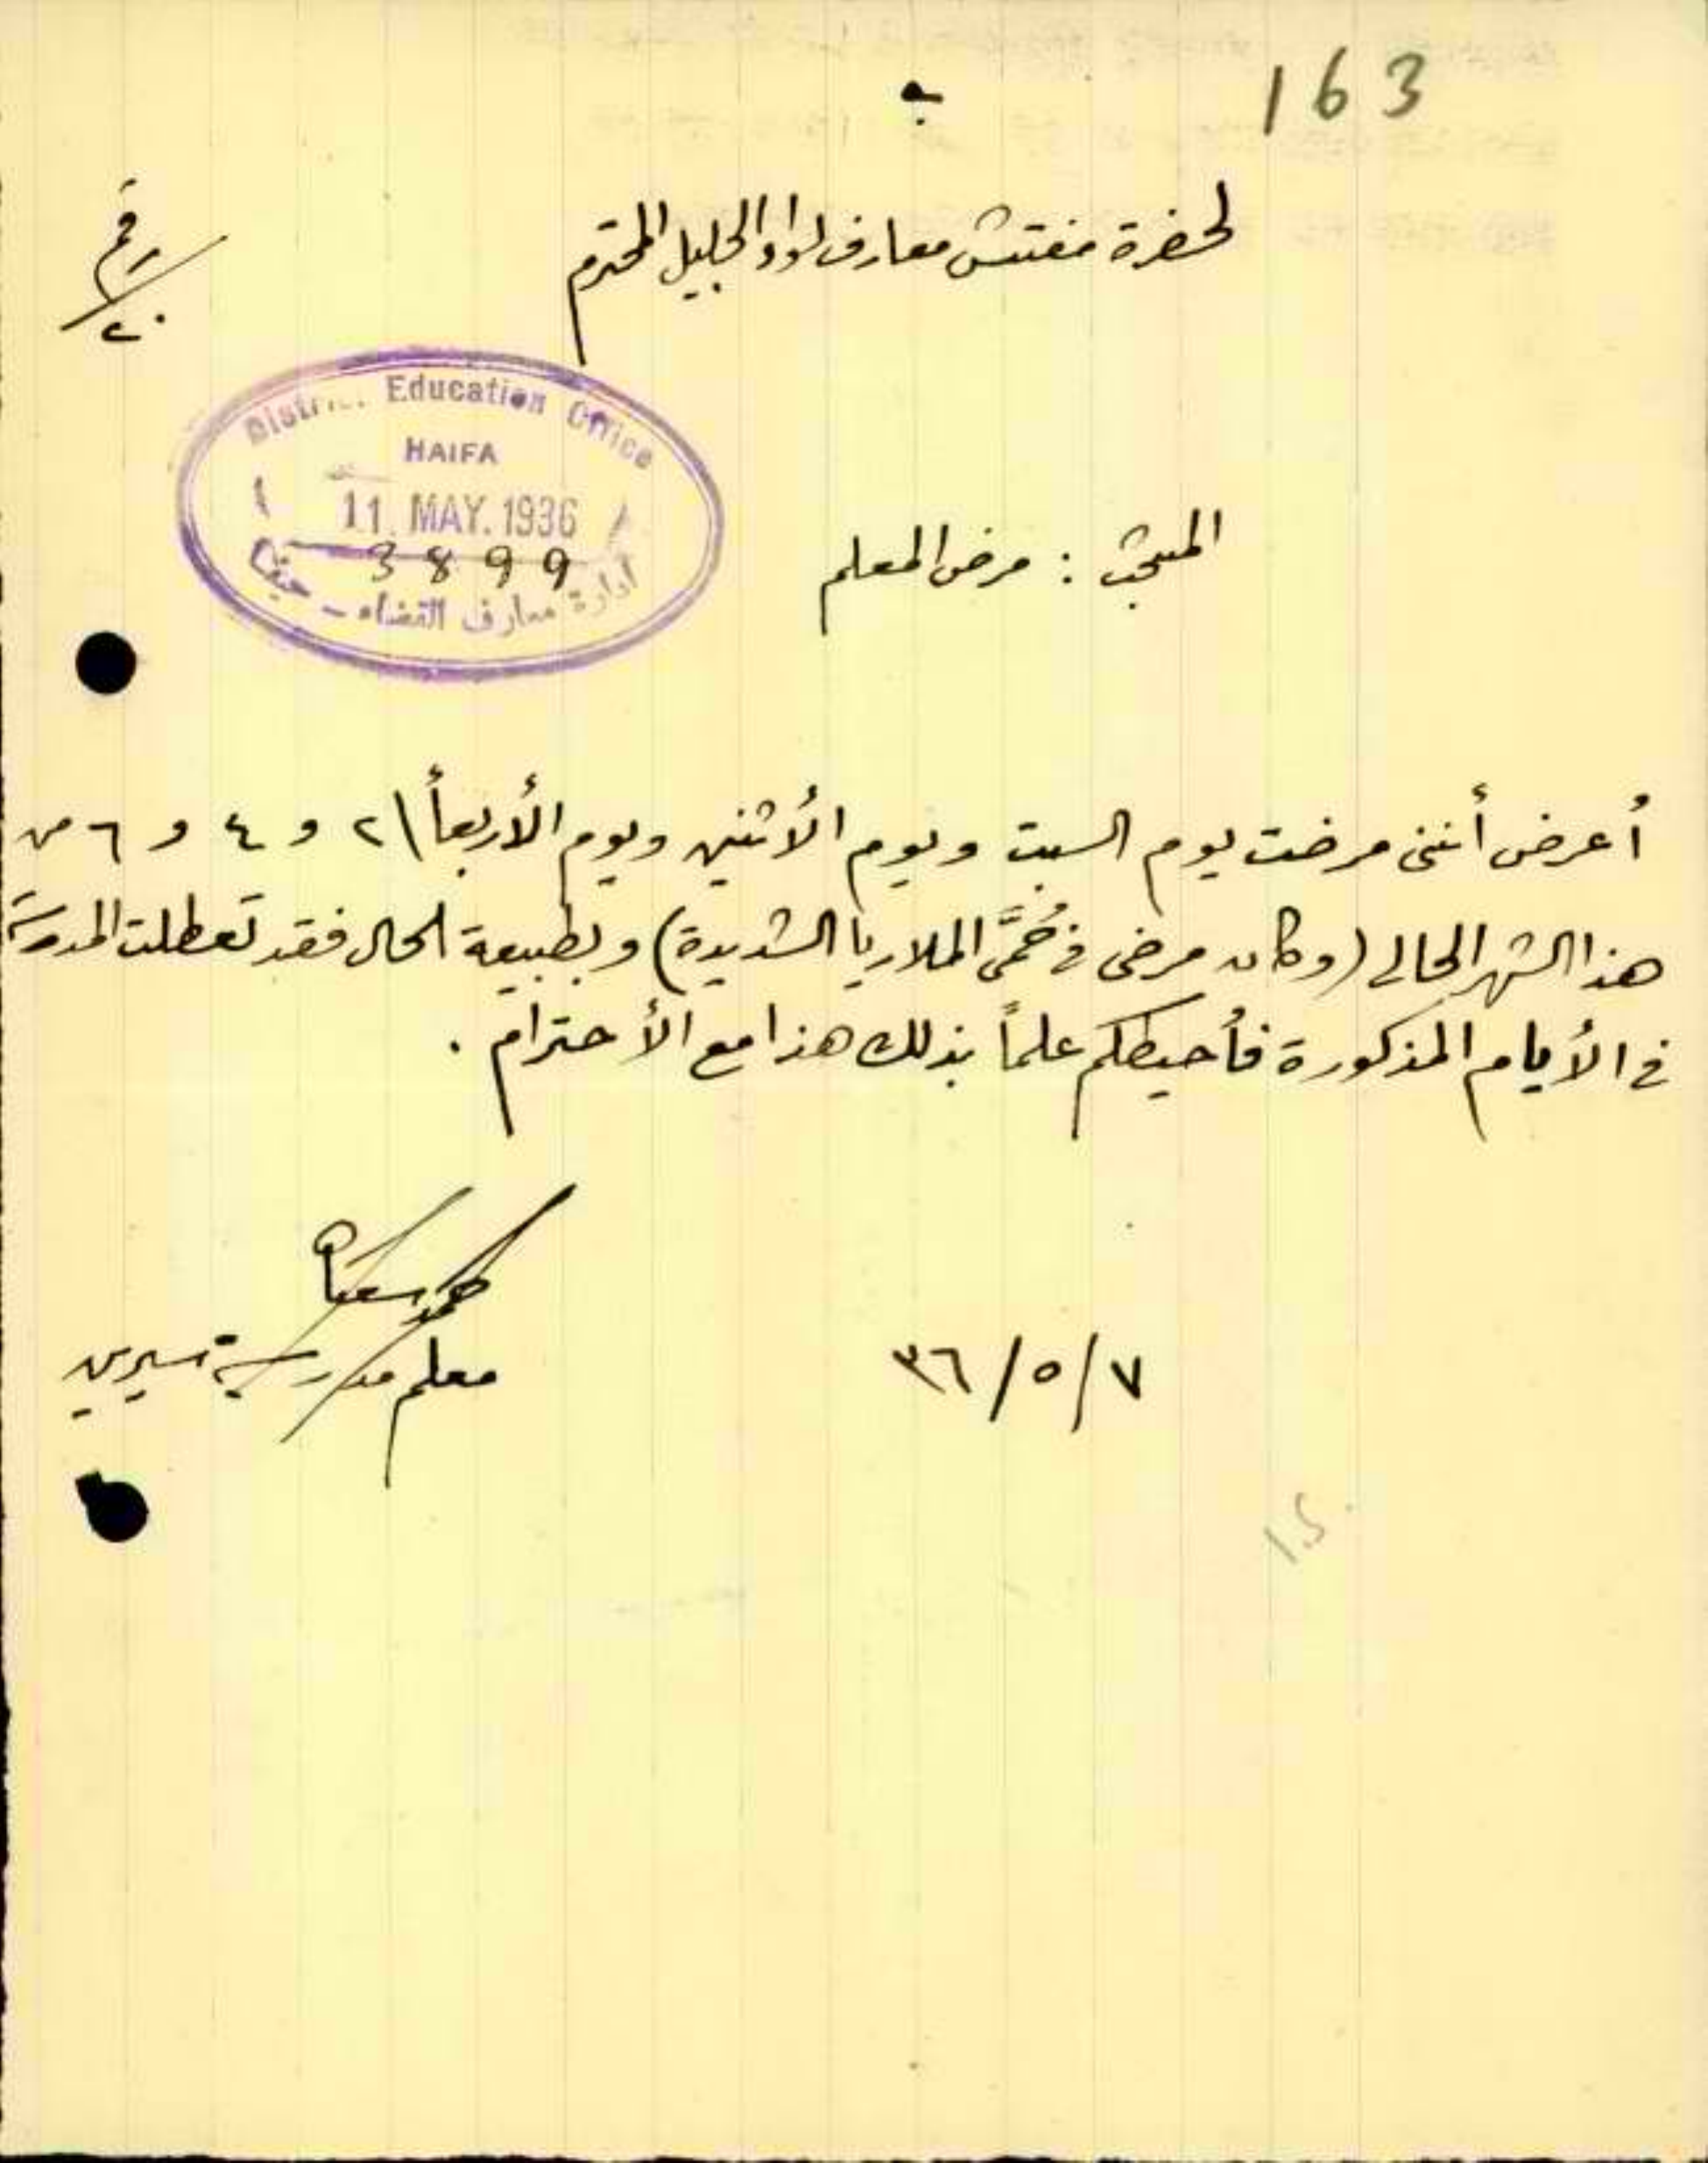 163
لحضرة مفتش معارف لواء الجليل المحترم
رقم
٢٠
District Education Office
HAIFA
11 MAY. 1936
3899
ادارة معارف القضاء - حيفا
المبحث : مرض المعلم
أعرض أننى مرضت يوم السبت ويوم الأثنين ويوم الأربعأ \ ٢ و ٤ و ٦ من
هذا الشهر الحالى (وكان مرضى فى حُمَّى الملاريا الشديدة) وبطبيعة الحال فقد تعطلت المدرسة
فى الأيام المذكورة فأحيطكم علماً بذلك هذا مع الأحترام .
معلم مدرسة سيرين
٣٦/٥/٧